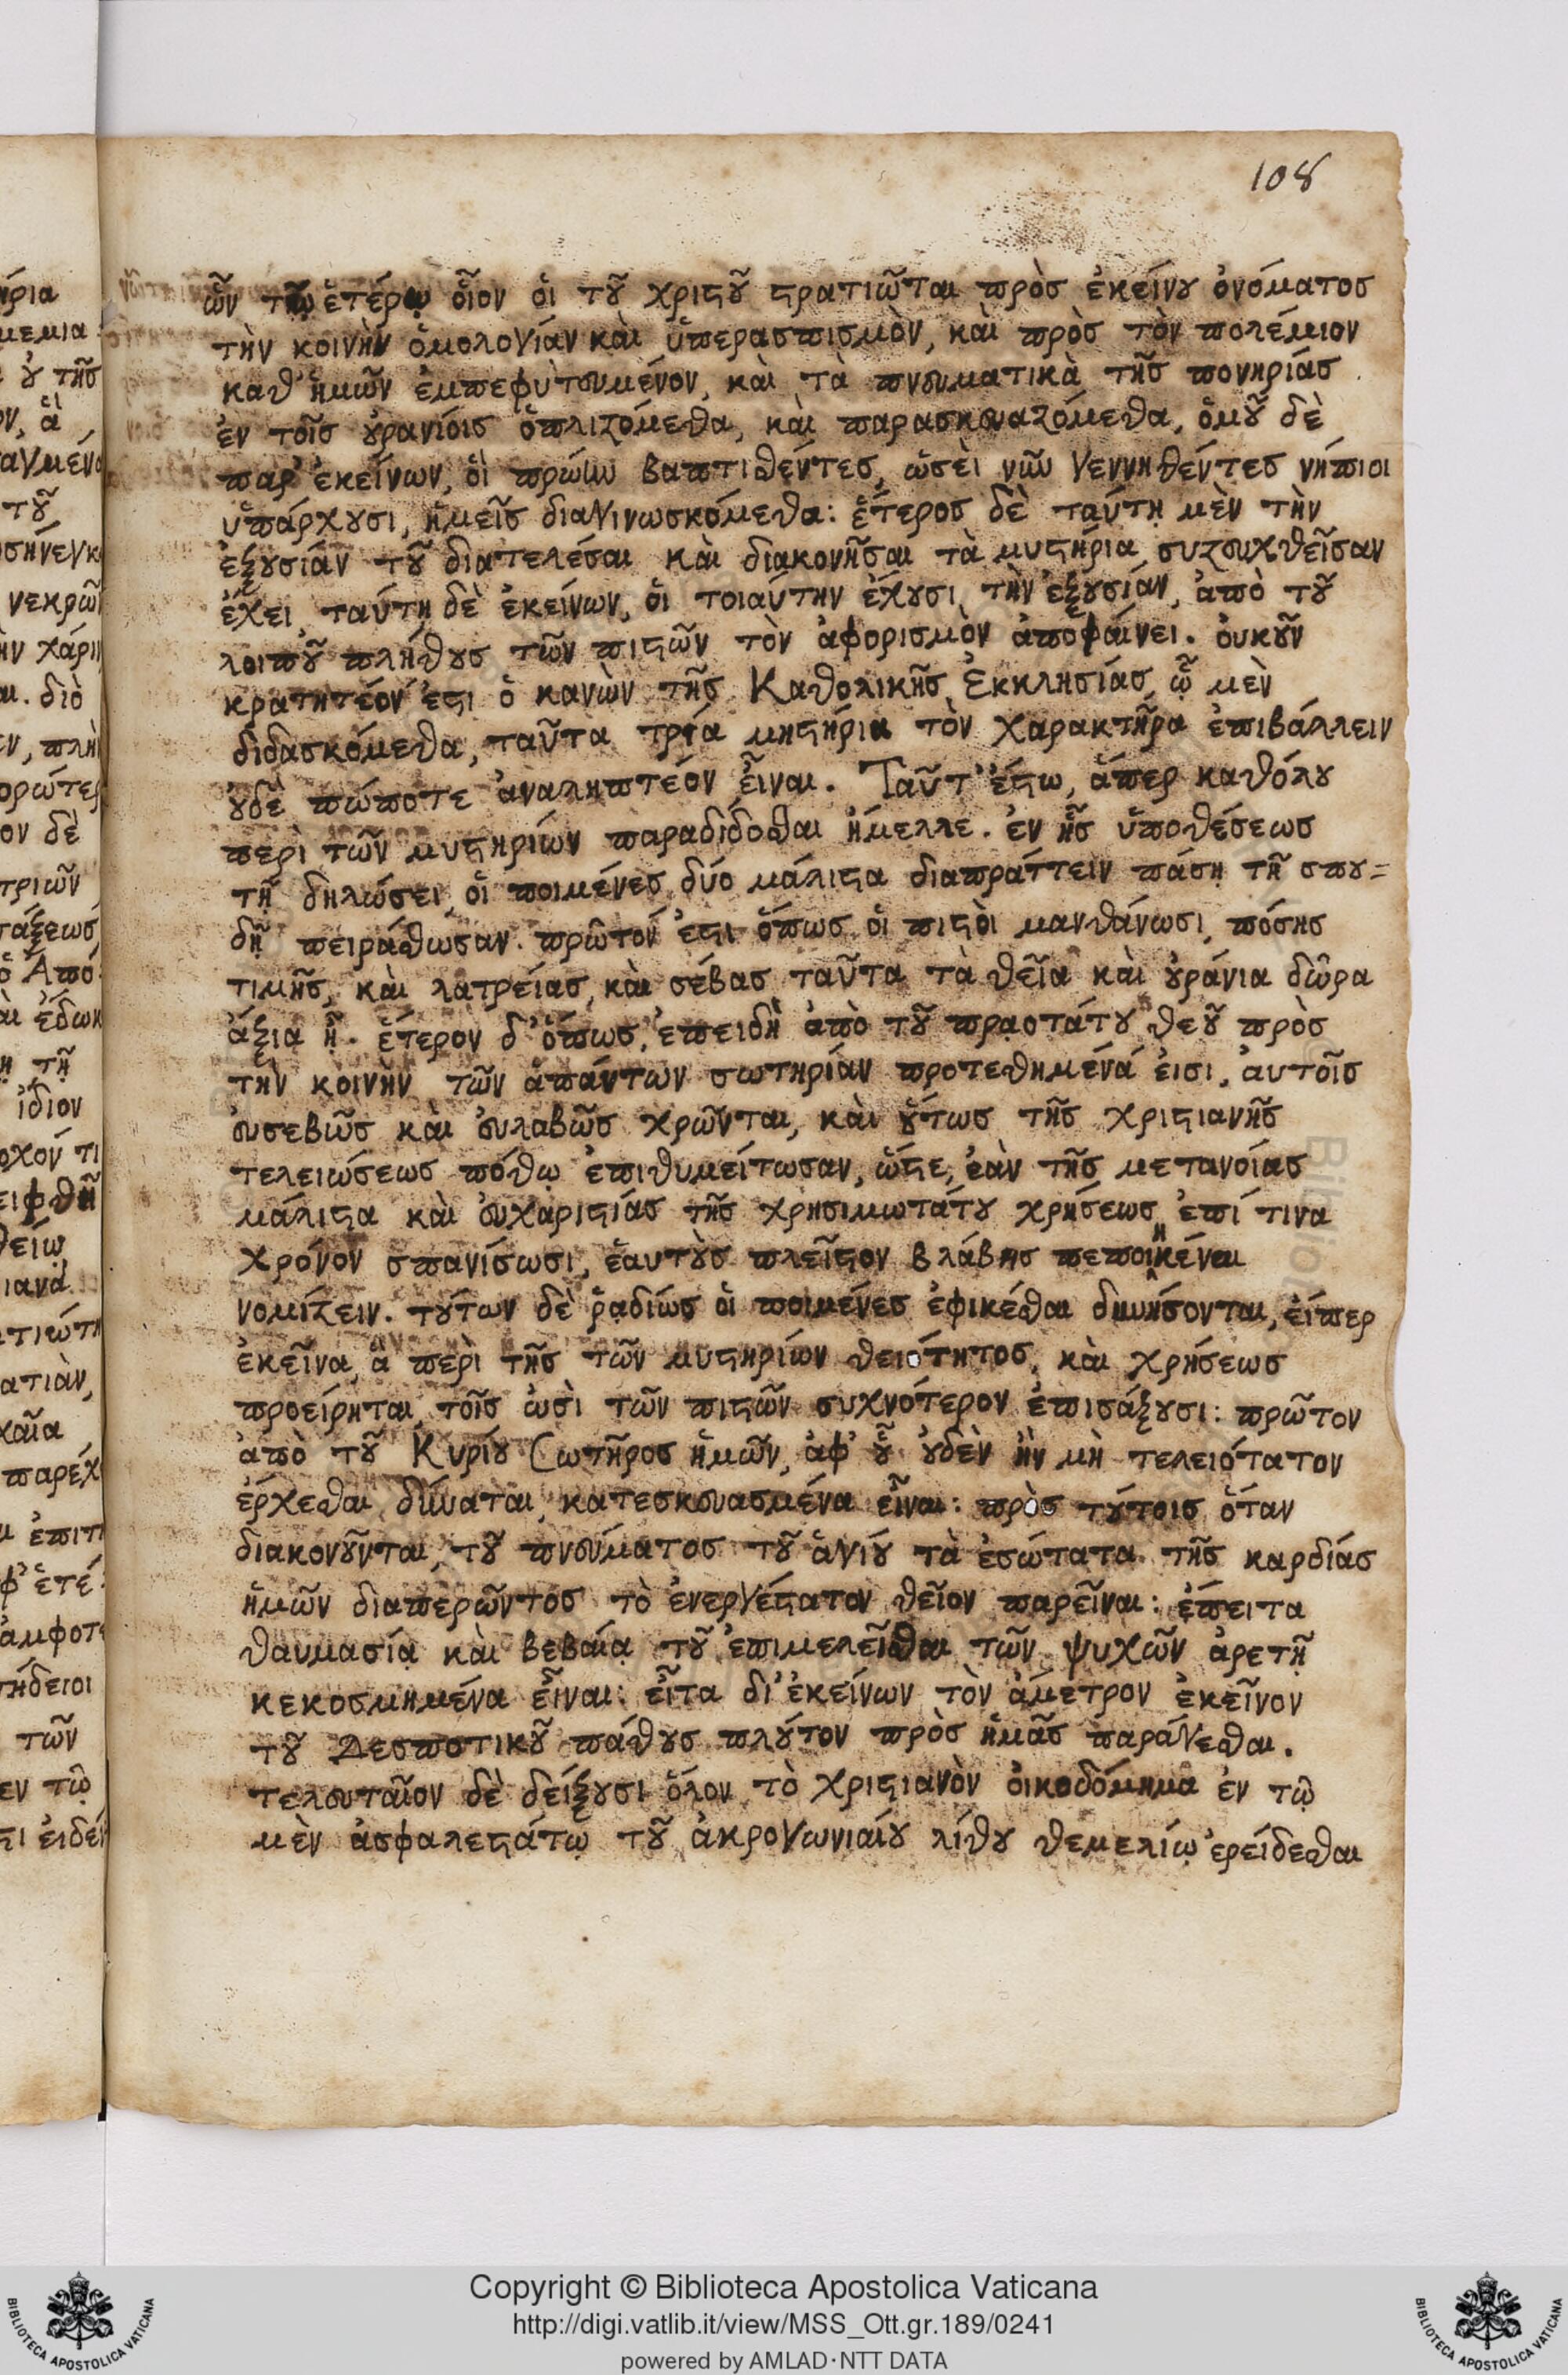 108
ὧν τῷ ἑτέρῳ οἷον ὁι τȣ͂ χριϛȣ͂ ϛρατιῶται πρὸσ ἐκείνȣ ὀνόματοσ
τὴν κοινὴν ὁμολογίαν καὶ ὑπερασπισμὸν, καὶ πρὸσ τὸν πολέμιον
καθ' ἡμῶν ἐμπεφυτευμένον, καὶ τὰ πνευματικὰ τῆσ πονηρίασ
ἐν τοῖσ ȣ̓ρανίοισ ὁπλιζόμεθα, καὶ παρασκευαζόμεθα, ὁμȣ͂ δὲ
παρ' ἐκείνων, ὁὶ πρώην βαπτιθέντεσ, ὡσεὶ νῦν γεννηθέντεσ νήπιοι
ὑπάρχȣσι, ἡμεῖσ διαγινωσκόμεθα: ἕτεροσ δὲ ταύτῃ μὲν τὴν
ἐξȣσίαν τȣ͂ διατελέσαι καὶ διακονῆσαι τὰ μυϛήρια συζευχθεῖσαν
ἔχει, ταύτῃ δὲ ἐκείνων, ὁι τοιαύτην ἔχȣσι τὴν ἐξȣσίαν, ἀπὸ τȣ͂
λοιπȣ͂ πλήθȣσ τῶν πιϛῶν τὸν ἀφορισμὸν ἀποφαίνει. ὀυκȣ͂ν
κρατητέον ἐϛι ὁ κανὼν τῆσ Καθολικῆσ Ἐκκλησίασ, ᾧ μὲν
διδασκόμεθα, ταῦτα τρία μηϛήρια τὸν χαρακτῆρα ἐπιβάλλειν
ȣ̓δὲ πώποτε ἀναληπτέον εἶναι. Ταῦτ' ἔϛω, ἅπερ καθόλȣ
περὶ τῶν μυϛηρίων παραδίδοθαι ἠμελλε. ἐν ἧσ ὑποθέσεωσ
τῇ δηλώσει, ὁι ποιμένεσ δύο μάλιϛα διαπράττειν πάσῃ τῇ σπȣ=
δῇ πειράθωσαν. πρῶτον ἐϛι ὅπωσ ὁι πιϛὸι μανθάνωσι, πόσησ
τιμῆσ, καὶ λατρείασ, καὶ σέβασ ταῦτα τὰ θεῖα καὶ ȣ̓ράνια δῶρα
ἀξια ᾖ. ἕτερον δ' ὅπωσ, ἐπειδὴ ἀπὸ τȣ͂ πραοτάτȣ θεȣ͂ πρὸσ
τὴν κοινὴν τῶν ἁπάντων σωτηρίαν προτεθημένά ἐισι, ἀυτοῖσ
ἐυσεβῶσ καὶ ἐυλαβῶσ χρῶνται, καὶ ȣ̔́τωσ τῆσ χριϛιανῆσ
τελειώσεωσ πόθῳ ἐπιθυμείτωσαν, ὥϛε, ἐὰν τῆσ μετανοίασ
μάλιϛα καὶ ἐυχαριϛίασ τῆσ χρησιμωτάτȣ χρήσεωσ ἐπί τινα
χρόνον σπανίσωσι, ἑαυτȣ̀σ πλεῖϛον βλάβησ πεποιηκέναι
νομίζειν. τȣ́των δὲ ῥαδίωσ ὁι ποιμένεσ ἐφικέθαι δυνήσονται, ἐίπερ
ἐκεῖνα, ἃ περὶ τῆσ τῶν μυϛηρίων θειότητοσ, καὶ χρήσεωσ
προείρηται, τοῖσ ὠσὶ τῶν πιϛῶν συχνότερον ἐπισάξȣσι: πρῶτον
ἀπὸ τȣ͂ Κυρίȣ Σωτῆροσ ἡμῶν, ἀφ' ȣ̔͂ ȣ̓δὲν ἠν μὴ τελειότατον
ἐρχεθαι δύναται, κατεσκευασμένα εἶναι: πρὸσ τȣ́τοισ ὅταν
διακονȣ͂νται, τȣ͂ πνεύματοσ τȣ͂ ἁγίȣ τὰ ἐσώτατα τῆσ καρδίασ
ἡμῶν διαπερῶντοσ τὸ ἐνεργέϛατον θεῖον παρεῖναι: ἐπειτα
θαυμασίᾳ καὶ βεβαίᾳ τȣ͂ ἐπιμελεῖθαι τῶν ψυχῶν ἀρετῇ
κεκοσμημένα εἶναι: εἶτα δι' ἐκείνων τὸν ἀμετρον ἐκεῖνον
τȣ͂ Δεσποτικȣ͂ πάθȣσ πλȣ́τον πρὸσ ἡμᾶσ παράγεθαι.
τελευταῖον δὲ δείξȣσι ὅλον τὸ χριϛιανὸν ὀικοδόμημα ἐν τῷ
μὲν ἀσφαλεϛάτῳ τȣ͂ ἀκρογωνιαίȣ λίθȣ θεμελίῳ ἐρείδεθαι
Copyright © Biblioteca Apostolica Vaticana
http://digi.vatlib.it/view/MSS_Ott.gr.189/0241
powered by AMLAD·NTT DATA
BIBLIOTECA APOSTOLICA VATICANA
BIBLIOTECA APOSTOLICA VATICANA